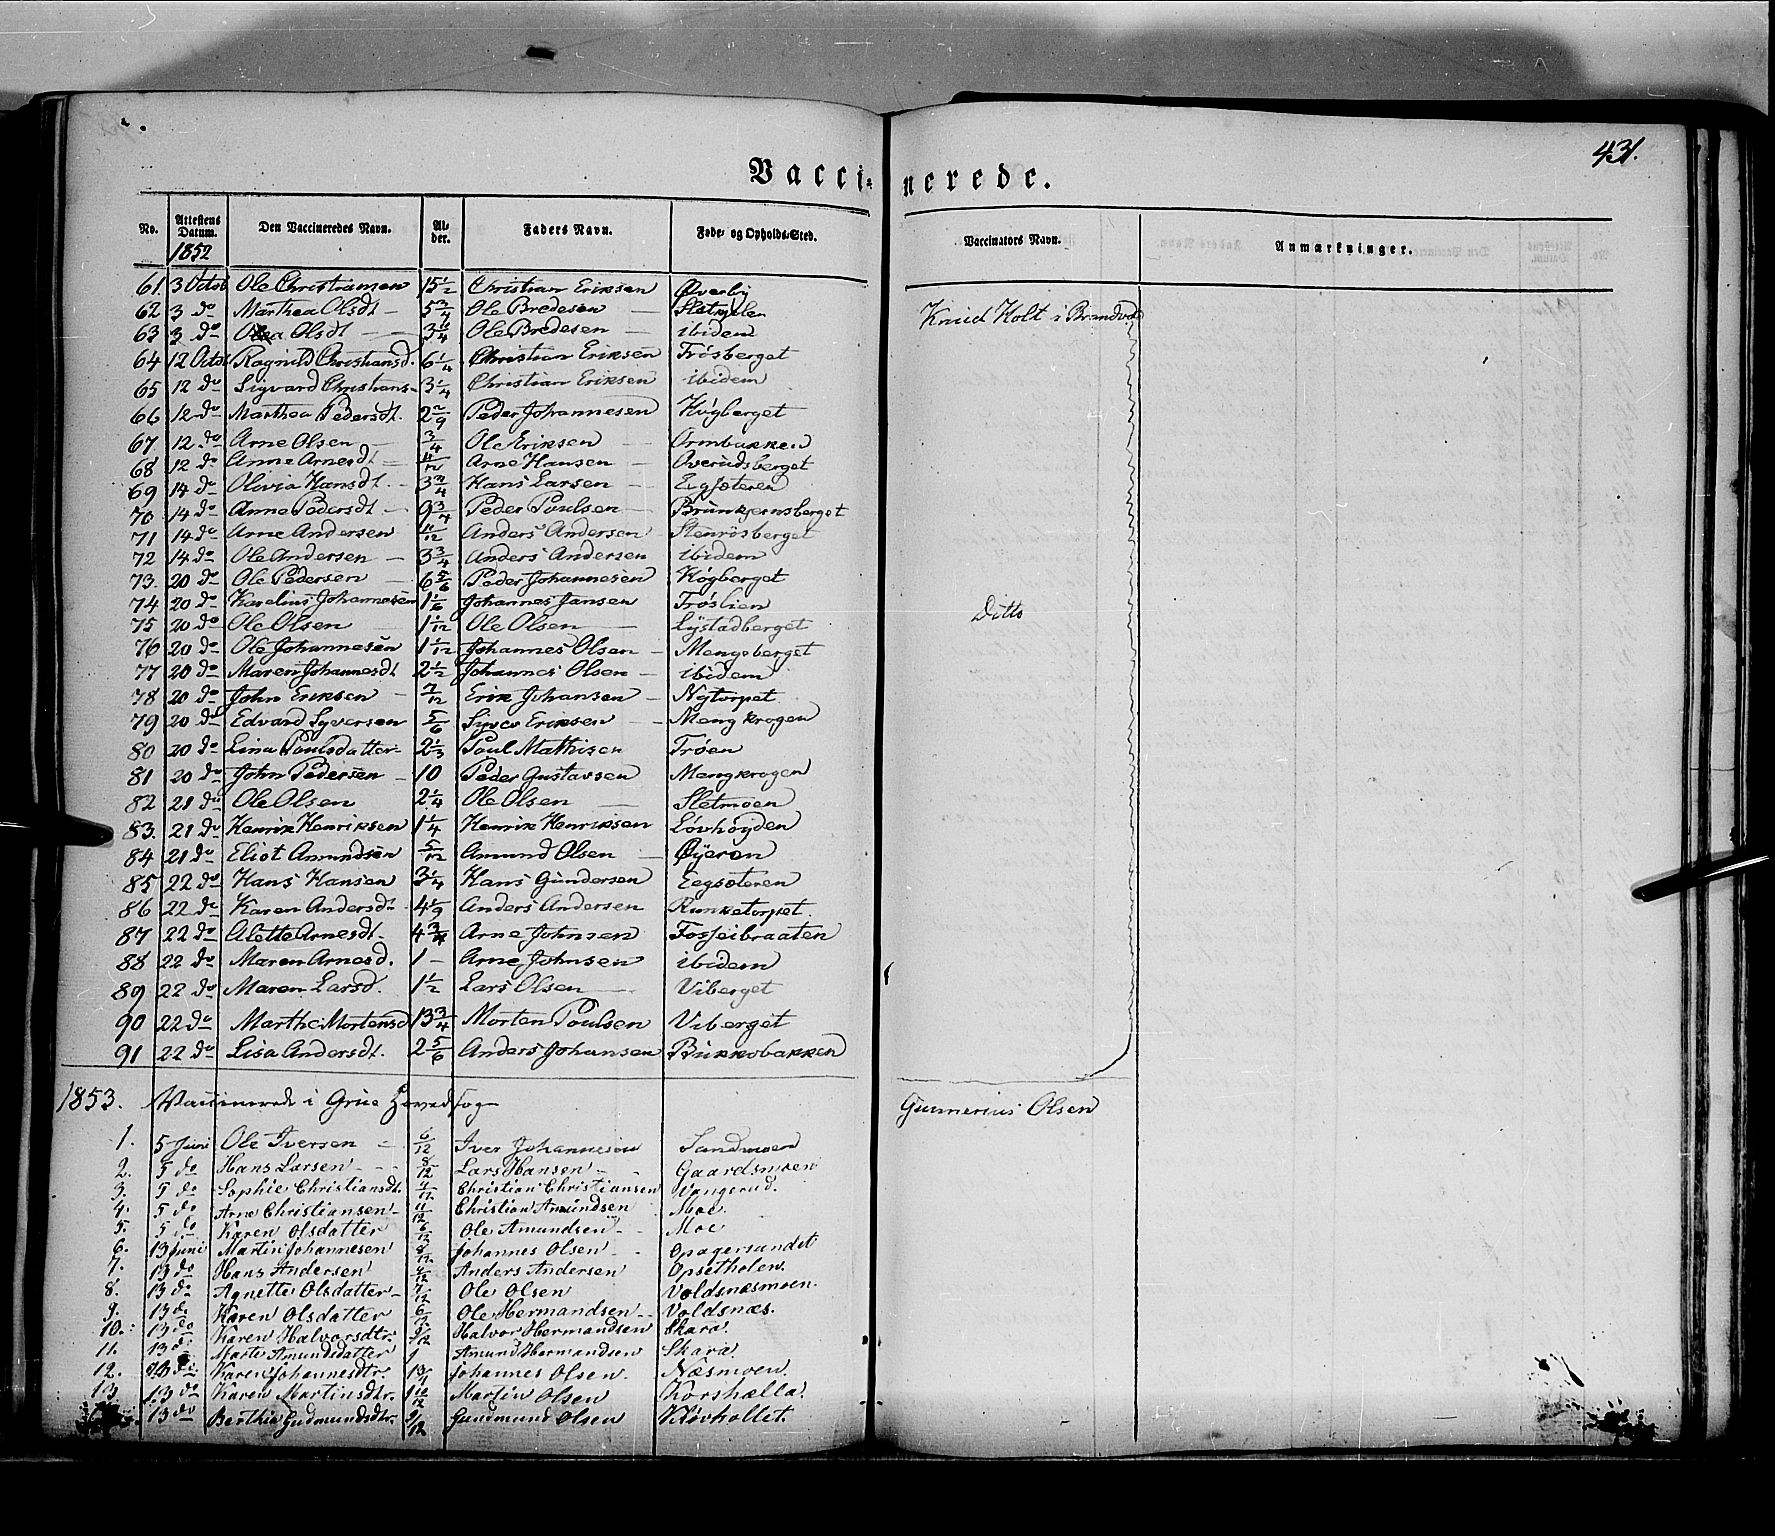 431.
Vaccinerede.
No. Attestens Datum. Den Vaccineredes Navn. Alder. Faders Navn. Føde- og Opholds-Sted. Vaccinators Navn. Anmærkninger.
1852
61 3 Octob Ole Christiansen 15 1/2 Christian Eriksen Øverby
62 3 do Marthea Olsdt 5 3/4 Ole Bredesen Sletmoen Knud Holt i Brandvold
63 3 do Olea Olsdt 3 Ole Bredesen ibidem
64 12 Octob Ragnild Christiansd. 6 1/4 Christian Eriksen Frösberget
65 12 do Sigvard Christians- 3 1/4 Christian Eriksen ibidem
66 12 do Marthea Pedersdt. 2 2/9 Peder Johannesen Högberget
67 12 do Arne Olsen 3/4 Ole Eriksen Ormbakken
68 12 do Anne Arnesdt 11/12 Arne Hansen Overudsberget
69 14 do Olivia Hansdt. 3 3/4 Hans Larsen Egsæteren
70 14 do Anne Pedersdt 9 3/4 Peder Poulsen Brunkjernsberget
71 14 do Arne Andersen 11/12 Anders Andersen Stenrösberget
72 14 do Ole Andersen 3 3/4 Anders Andersen ibidem
73. 20 do Ole Pedersen 6 5/6 Peder Johannesen Högberget
74 20 do Karelius Johannesen 1 1/6 Johannes Jansen Fröslien Ditto
75 20 do Ole Olsen 1 1/12 Ole Olsen Lystadberget
76 20 do Ole Johannesen 1 1/12 Johannes Olsen Mengsberget
77 20 do Maren Johannesdt 2 1/2 Johannes Olsen ibidem
78 20 do John Eriksen 7/12 Erik Johansen Nytorpet
79 20 do Edvard Syversen 5/6 Syver Eriksen Mengkrogen
80 20 do Lina Poulsdatter 2 1/3 Poul Mathisen Tröen
81 20 do John Pedersen 10 Peder Gustavsen Mengkrogen
82 21 do Ole Olsen 2 1/4 Ole Olsen Sletmoen
83. 21 do Henrik Henriksen 1 1/4 Henrik Henriksen Lövhöyden
84 21 do Eliot Amundsen 5/12 Amund Olsen Øyeren
85 22 do Hans Hansen 3 1/4 Hans Gundersen Eegsæteren
86 22 do Karen Andersdt 4 1/9 Anders Andersen Runketorpet.
87 22 do Alette Arnesdt. 4 Arne Johnsen Fosseibraaten
88 22 do Maren Arnesd. 1 – Arne Johnsen ibidem
89 22 do Maren Larsd. 1 1/2 Lars Olsen Viberget
90 22 do Marthe Mortensd 13 3/4 Morten Poulsen Viberget
91 22 do Lisa Andersdt. 2 5/6 Anders Johansen Bukkobakken
1853. Vaccinerede i Grue Hovedsogn Gunnerius Olsen
1. 5 Juni Ole Iversen 6/12 Iver Johannesen Sandmoen
2. 5 do Hans Larsen 8/12 Lars Hansen Gaardsmoen
3. 5 do Sophie Christiansdt. Christian Christiansen Vangerud.
4. 5 do Arne Christiansen 11/12 Christian Amundsen Moe.
5. 5 do Karen Olsdatter 6/12 Ole Amundsen Moe
6. 13 Juni Martin Johannesen 8/12 Johannes Olsen Opagersandet
7. 13 do Hans Andersen Anders Andersen Opsetholen.
8. 13 do Agnette Olsdatter 7/12 Ole Olsen Voldsnæsmoen.
9. 13 do Karen Olsdatter Ole Hermandsen Voldsnæs.
10. 13 do Karen Halvorsdtr. Halvor Hermandsen Skara.
11. 13 do Marte Amundsdatter 1 Amund Hermandsen Skara.
12. 13 do Karen Johannesdtr. Johannes Olsen. Næsmoen.
13 13 do Karen Martinsdtr. 10/12 Martin Olsen Korshælla.
13 do Berthe Gudmundsdtr. 9/12 Gudmund Olsen Klövhollet.